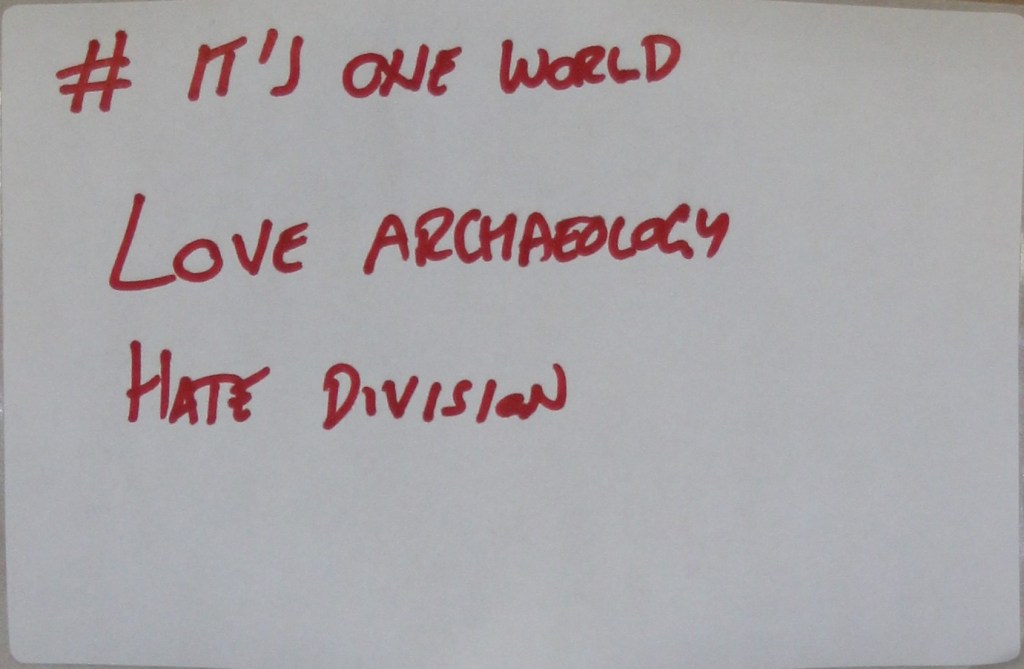 # IT'S ONE WORLD
LOVE ARCHAEOLOGY
HATE DIVISION